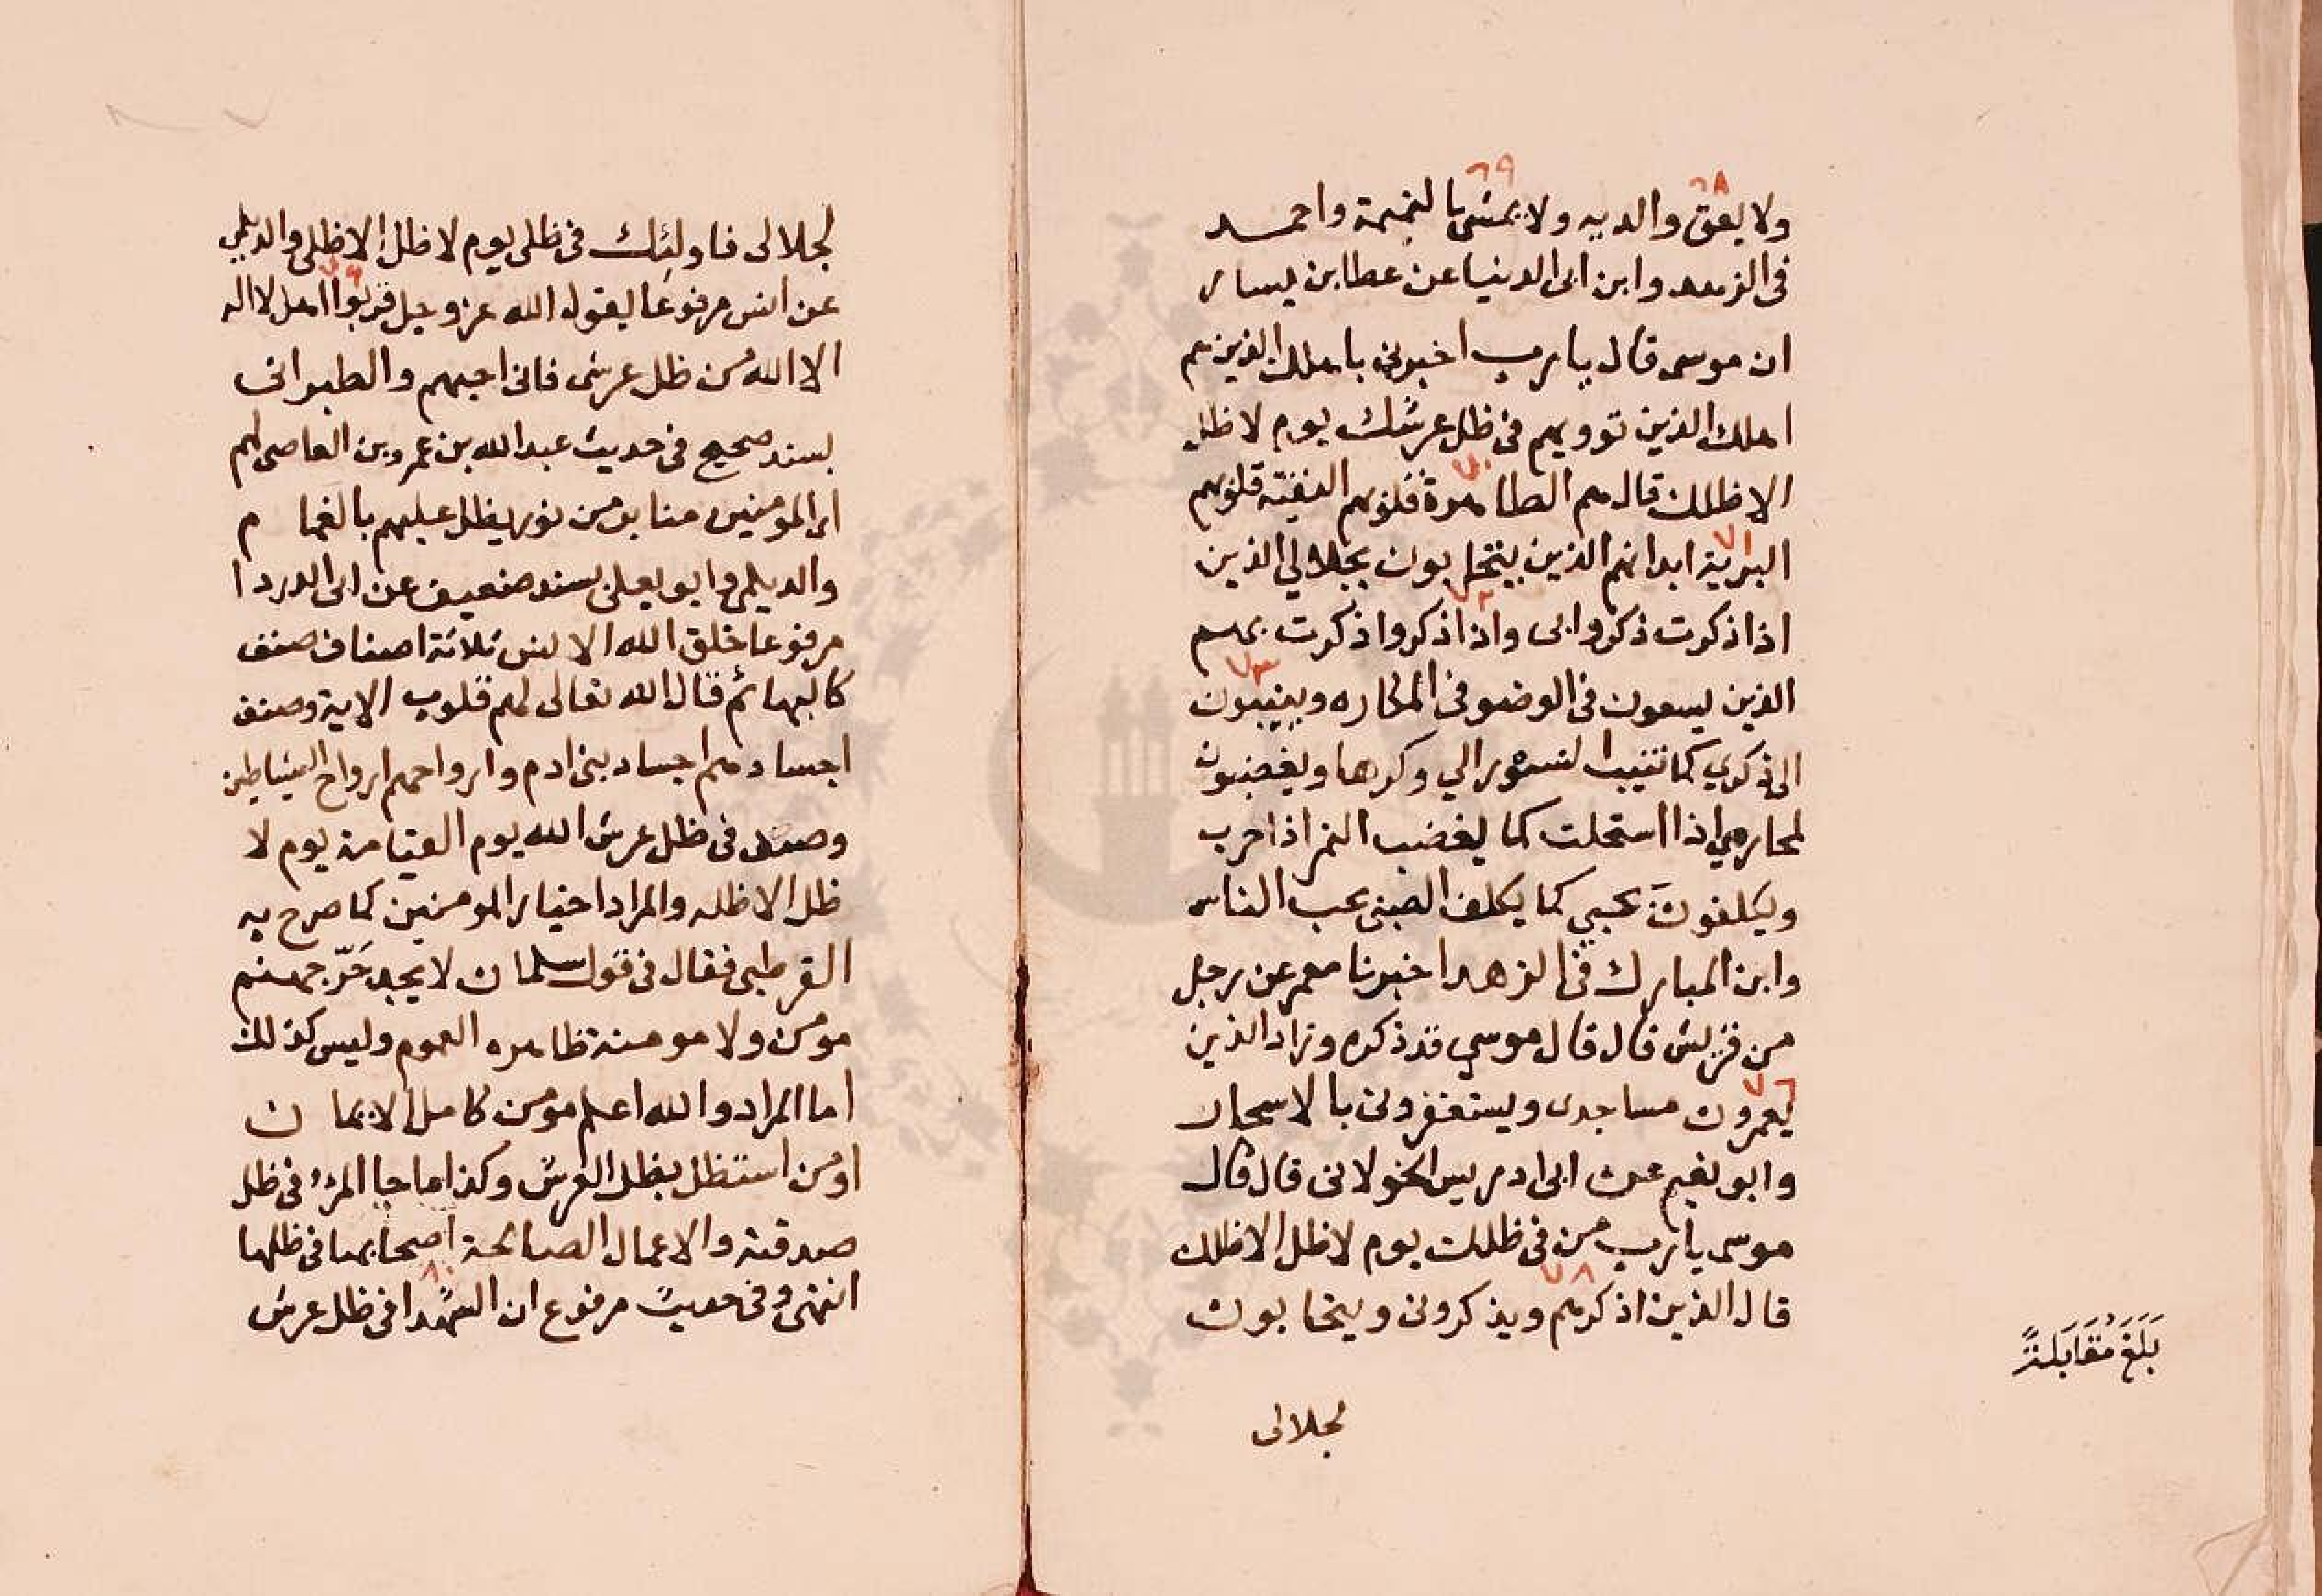 ٦٨ ٦٩
ولا يعق والديه ولا يمشى بالنميمة واحمد
فى الزهد وابن ابى الدنيا عن عطا بن يسار
ان موسى قال يا رب اخبرنى باهلك الذين هم
اهلك الذين توويهم فى ظل عرشك يوم لا ظل
الا ظلك قال هم الطاهرة قلوبهم النقية قلوبهم
٧٠
البرية ابدانهم الذين يتحابون بجلالي الذين
٧١
اذا ذكرت ذكروا بى واذا ذكروا ذكرت بهم
٧٢
الذين يسعون فى الوضو فى المكاره وينيبون
٧٣
الى ذكري كما تنيب النسور الي وكرها ويغضبون
لمحارمي اذا استحلت كما يغضب النمر اذا حرب
ويكلفون بحبي كما يكلف الصبى بحب الناس
وابن المبارك فى الزهد اخبرنا معمر عن رجل
من قريش قال قال موسي فذكره وزاد الذين
٧٦
يعمرون مساجدى ويستغفرونى بالاسحار
وابو نعيم عن ابى ادريس الخولانى قال قال
موسى يا رب من فى ظلك يوم لا ظل الا ظلك
٧٨
قال الذين اذكرهم ويذكرونى ويتحابون
لجلالى
بَلَغَ مُقَابَلَةً
لجلالى فاولئك فى ظلى يوم لا ظل الا ظلى والديلمي
٧٩
عن انس مرفوعا يقول الله عز وجل قربوا اهل لا اله
الا الله من ظل عرشى فانى احبهم والطبرانى
بسند صحيح فى حديث عبد الله بن عمرو بن العاصى لهم
اى المومنين منابر من نور يظل عليهم بالغمام
والديلمى وابو يعلى بسند ضعيف عن ابى الدردا
مرفوعا خلق الله الانس ثلاثة اصناف صنف
كالبهائم قال الله تعالى لهم قلوب الاية وصنف
اجسادهم اجساد بنى ادم وارواحهم ارواح الشياطين
وصنف فى ظل عرش الله يوم القيامة يوم لا
ظل الا ظله والمراد اخيار المومنين كما صرح به
القرطبى فقال فى قول سلمان لا يجد حَرّ جهنم
مومن ولا مومنة ظاهره العموم وليس كذلك
اما المراد والله اعلم مومن كامل الايمان
او من استظل بظل العرش وكذا ما جا المرء فى ظل
صدقته والاعمال الصالحة اصحابها فى ظلها
٨٠
انتهى وفى حديث مرفوع ان الشهدا فى ظل عرش